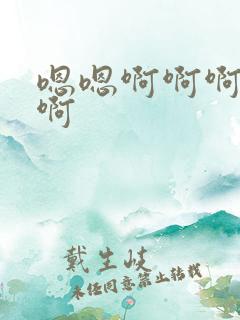 嗯嗯啊啊啊
啊
戴生岐
未经同意禁止转载